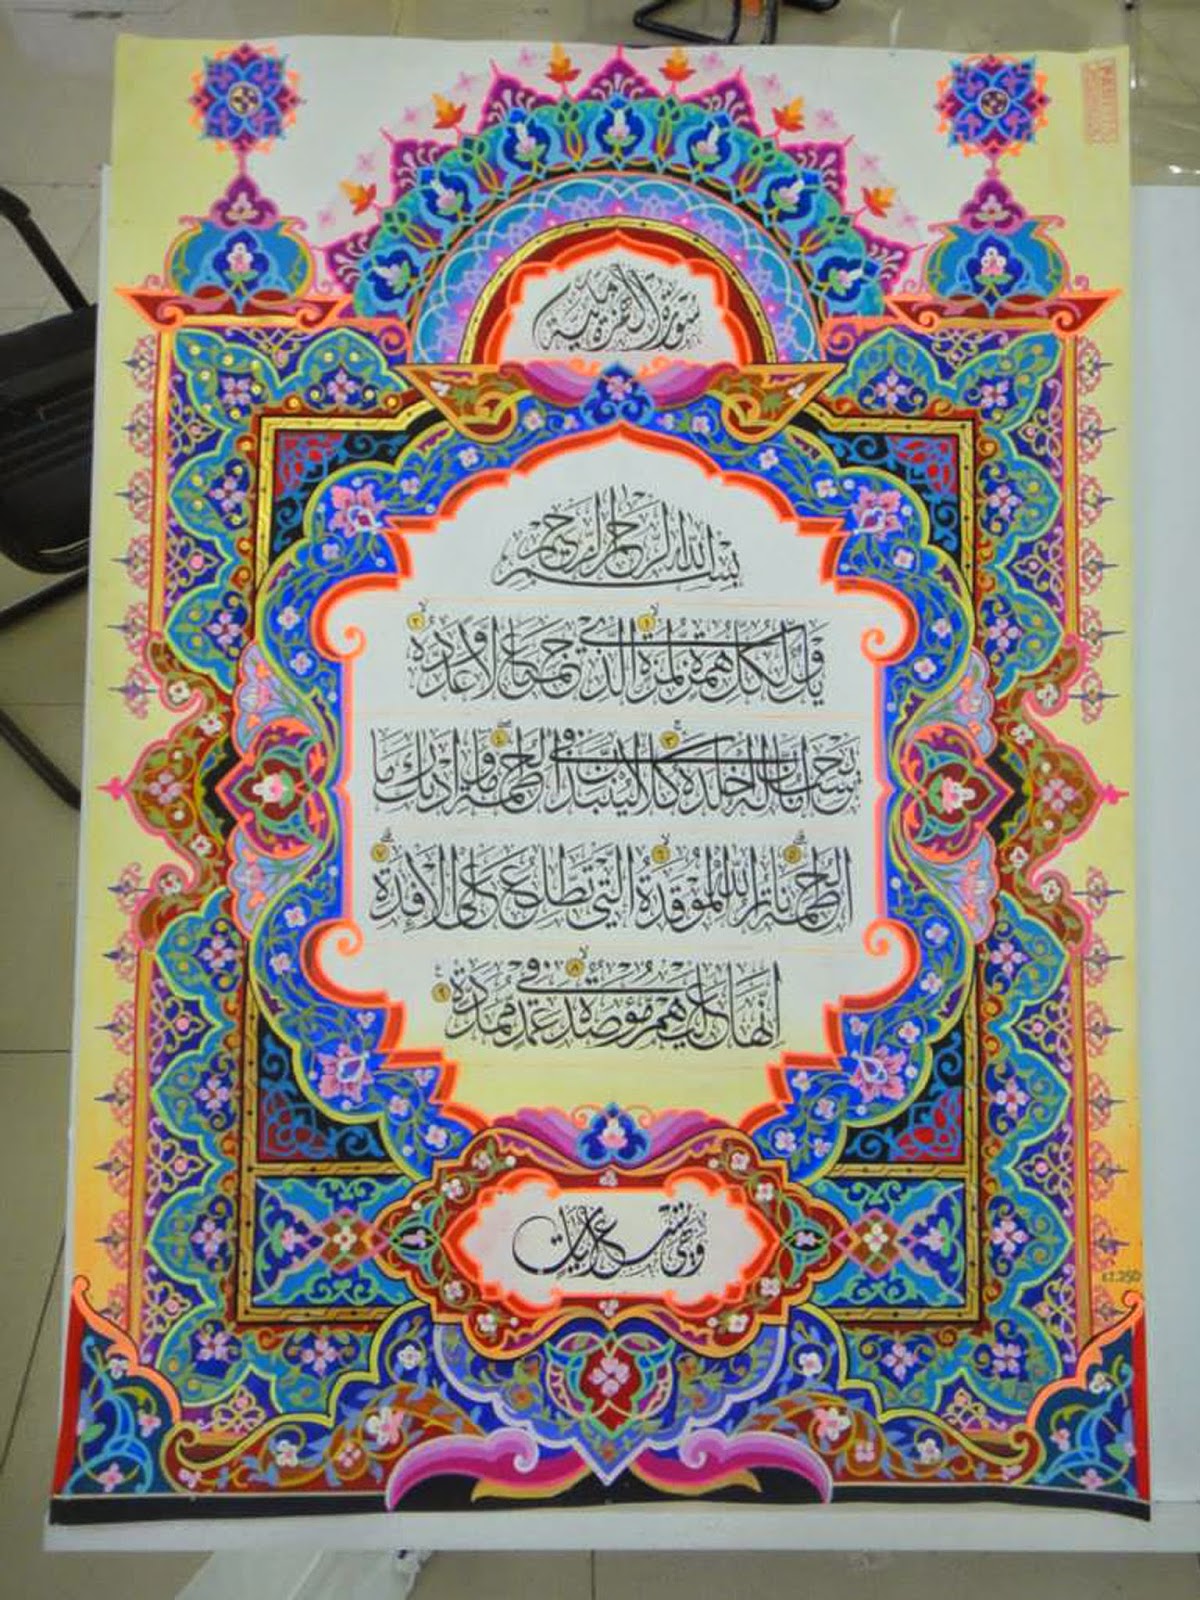 سورة الهمزة مكية
بسم الله الرحمن الرحيم
ويل لكل همزة لمزة ١ الذي جمع مالا وعدده ٢
يحسب أن ماله أخلده ٣ كلا لينبذن في الحطمة ٤ وما أدراك ما
الحطمة ٥ نار الله الموقدة ٦ التي تطلع على الأفئدة ٧
إنها عليهم مؤصدة ٨ في عمد ممددة ٩
وهي تسع آيات